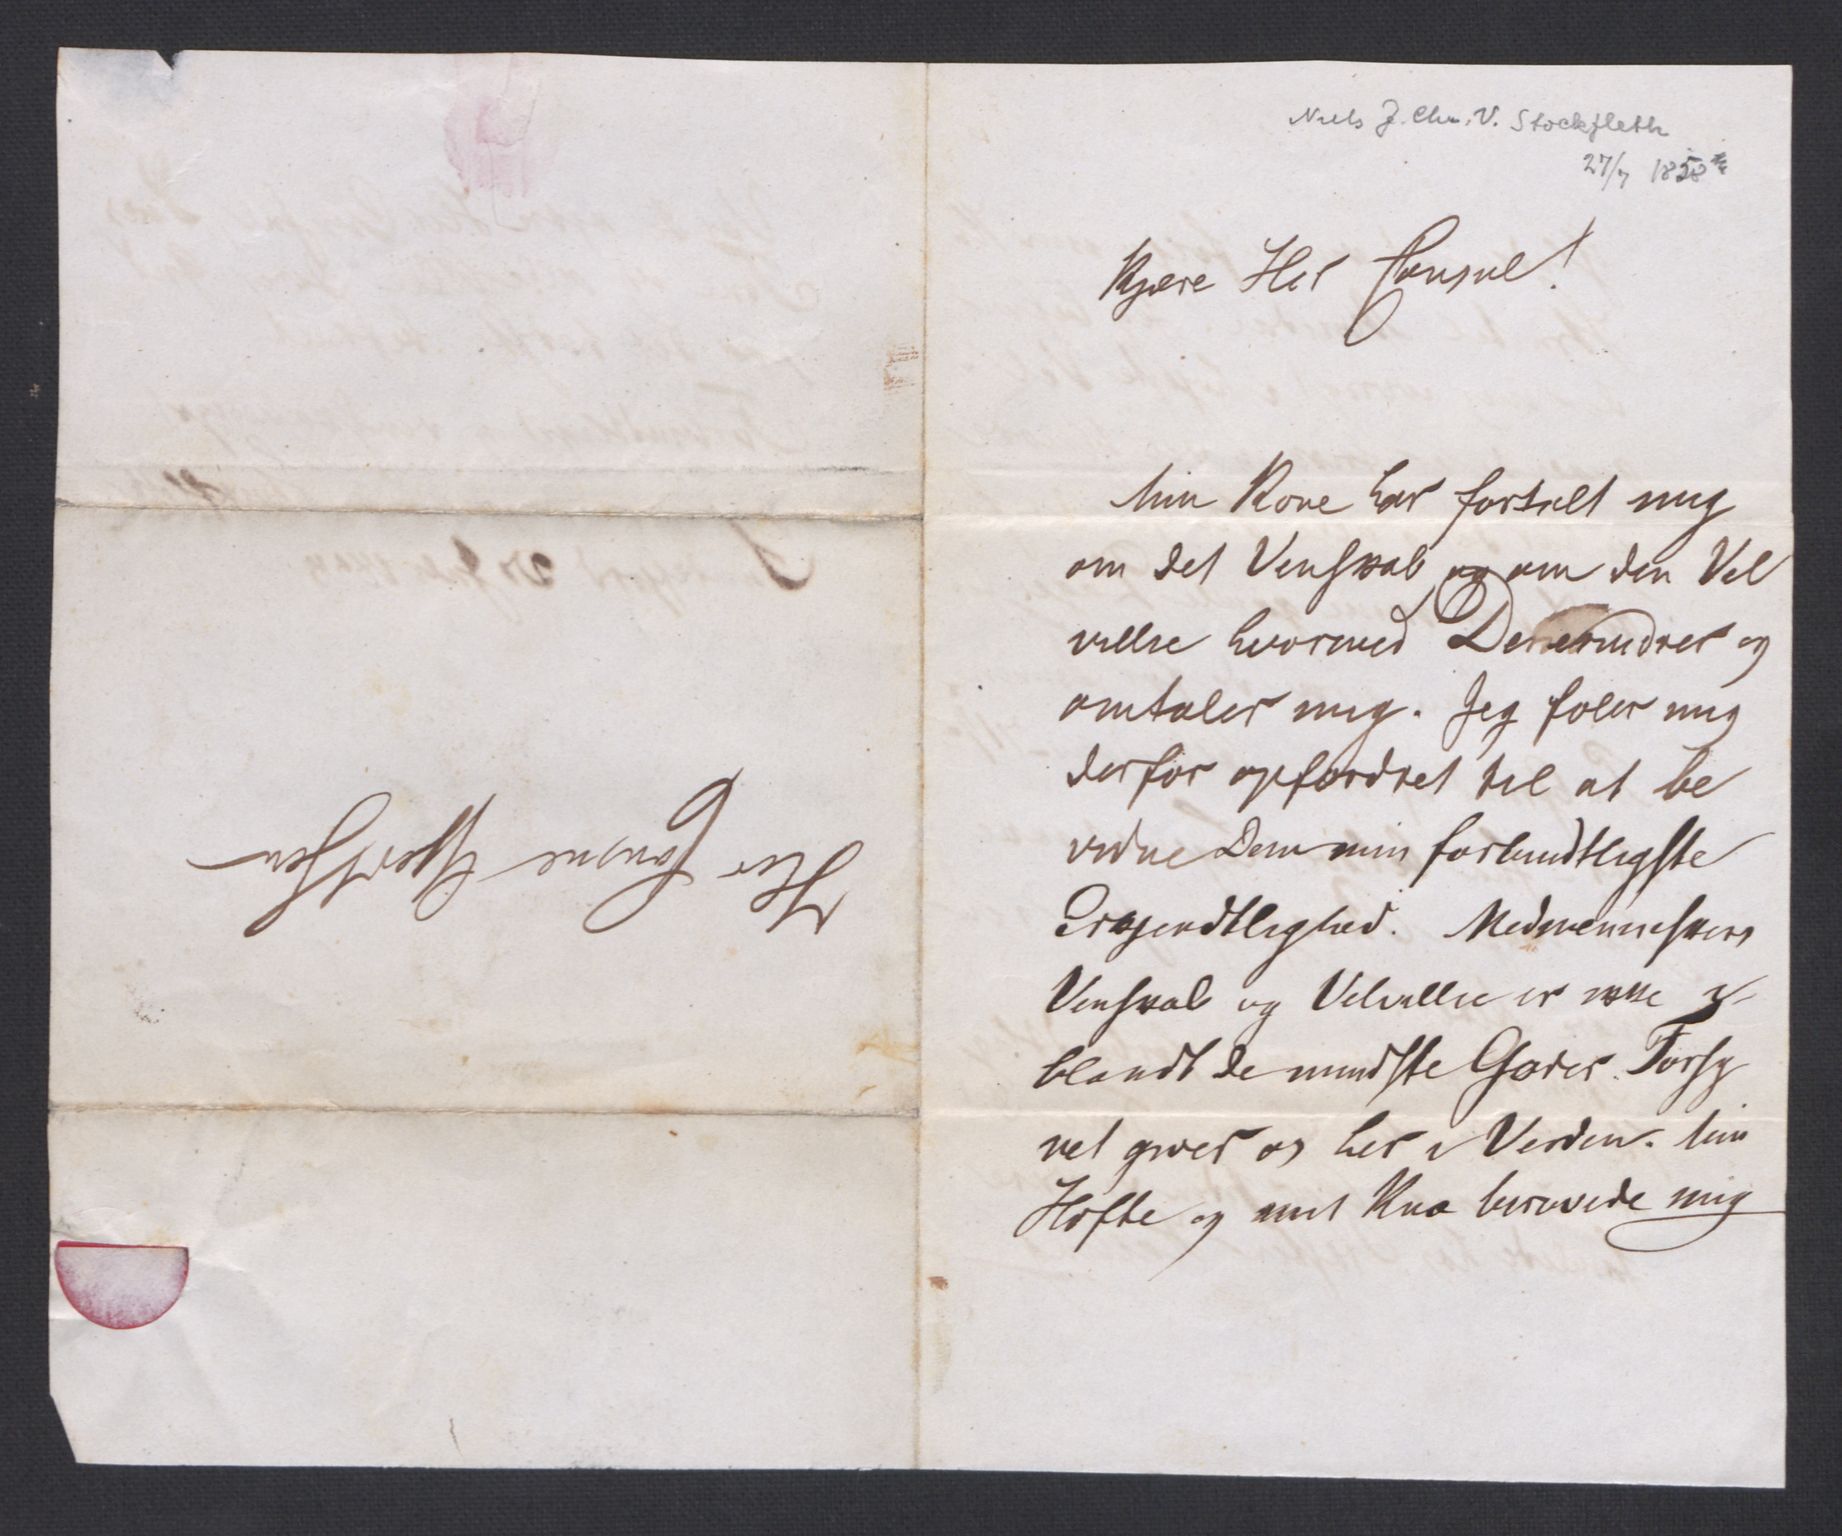 Niels J. Chr. V. Stockfleth
27/7 1858
Kjære Her Consul!
Min Kone har fortalt mig
om det Venskab og om den Vel
villie hvormed De erindrer og
omtaler mig. Jeg føler mig
derfor opfordret til at be
vidne Dem min forbindtligste
Erkjendtlighed. Medmenneskers
Venskab og Velvillie er ikke i
blandt de mindste Goder Forsy
net giver os her i Verden. Min
Hofte og mit Knæ berøvede mig
Her Consul